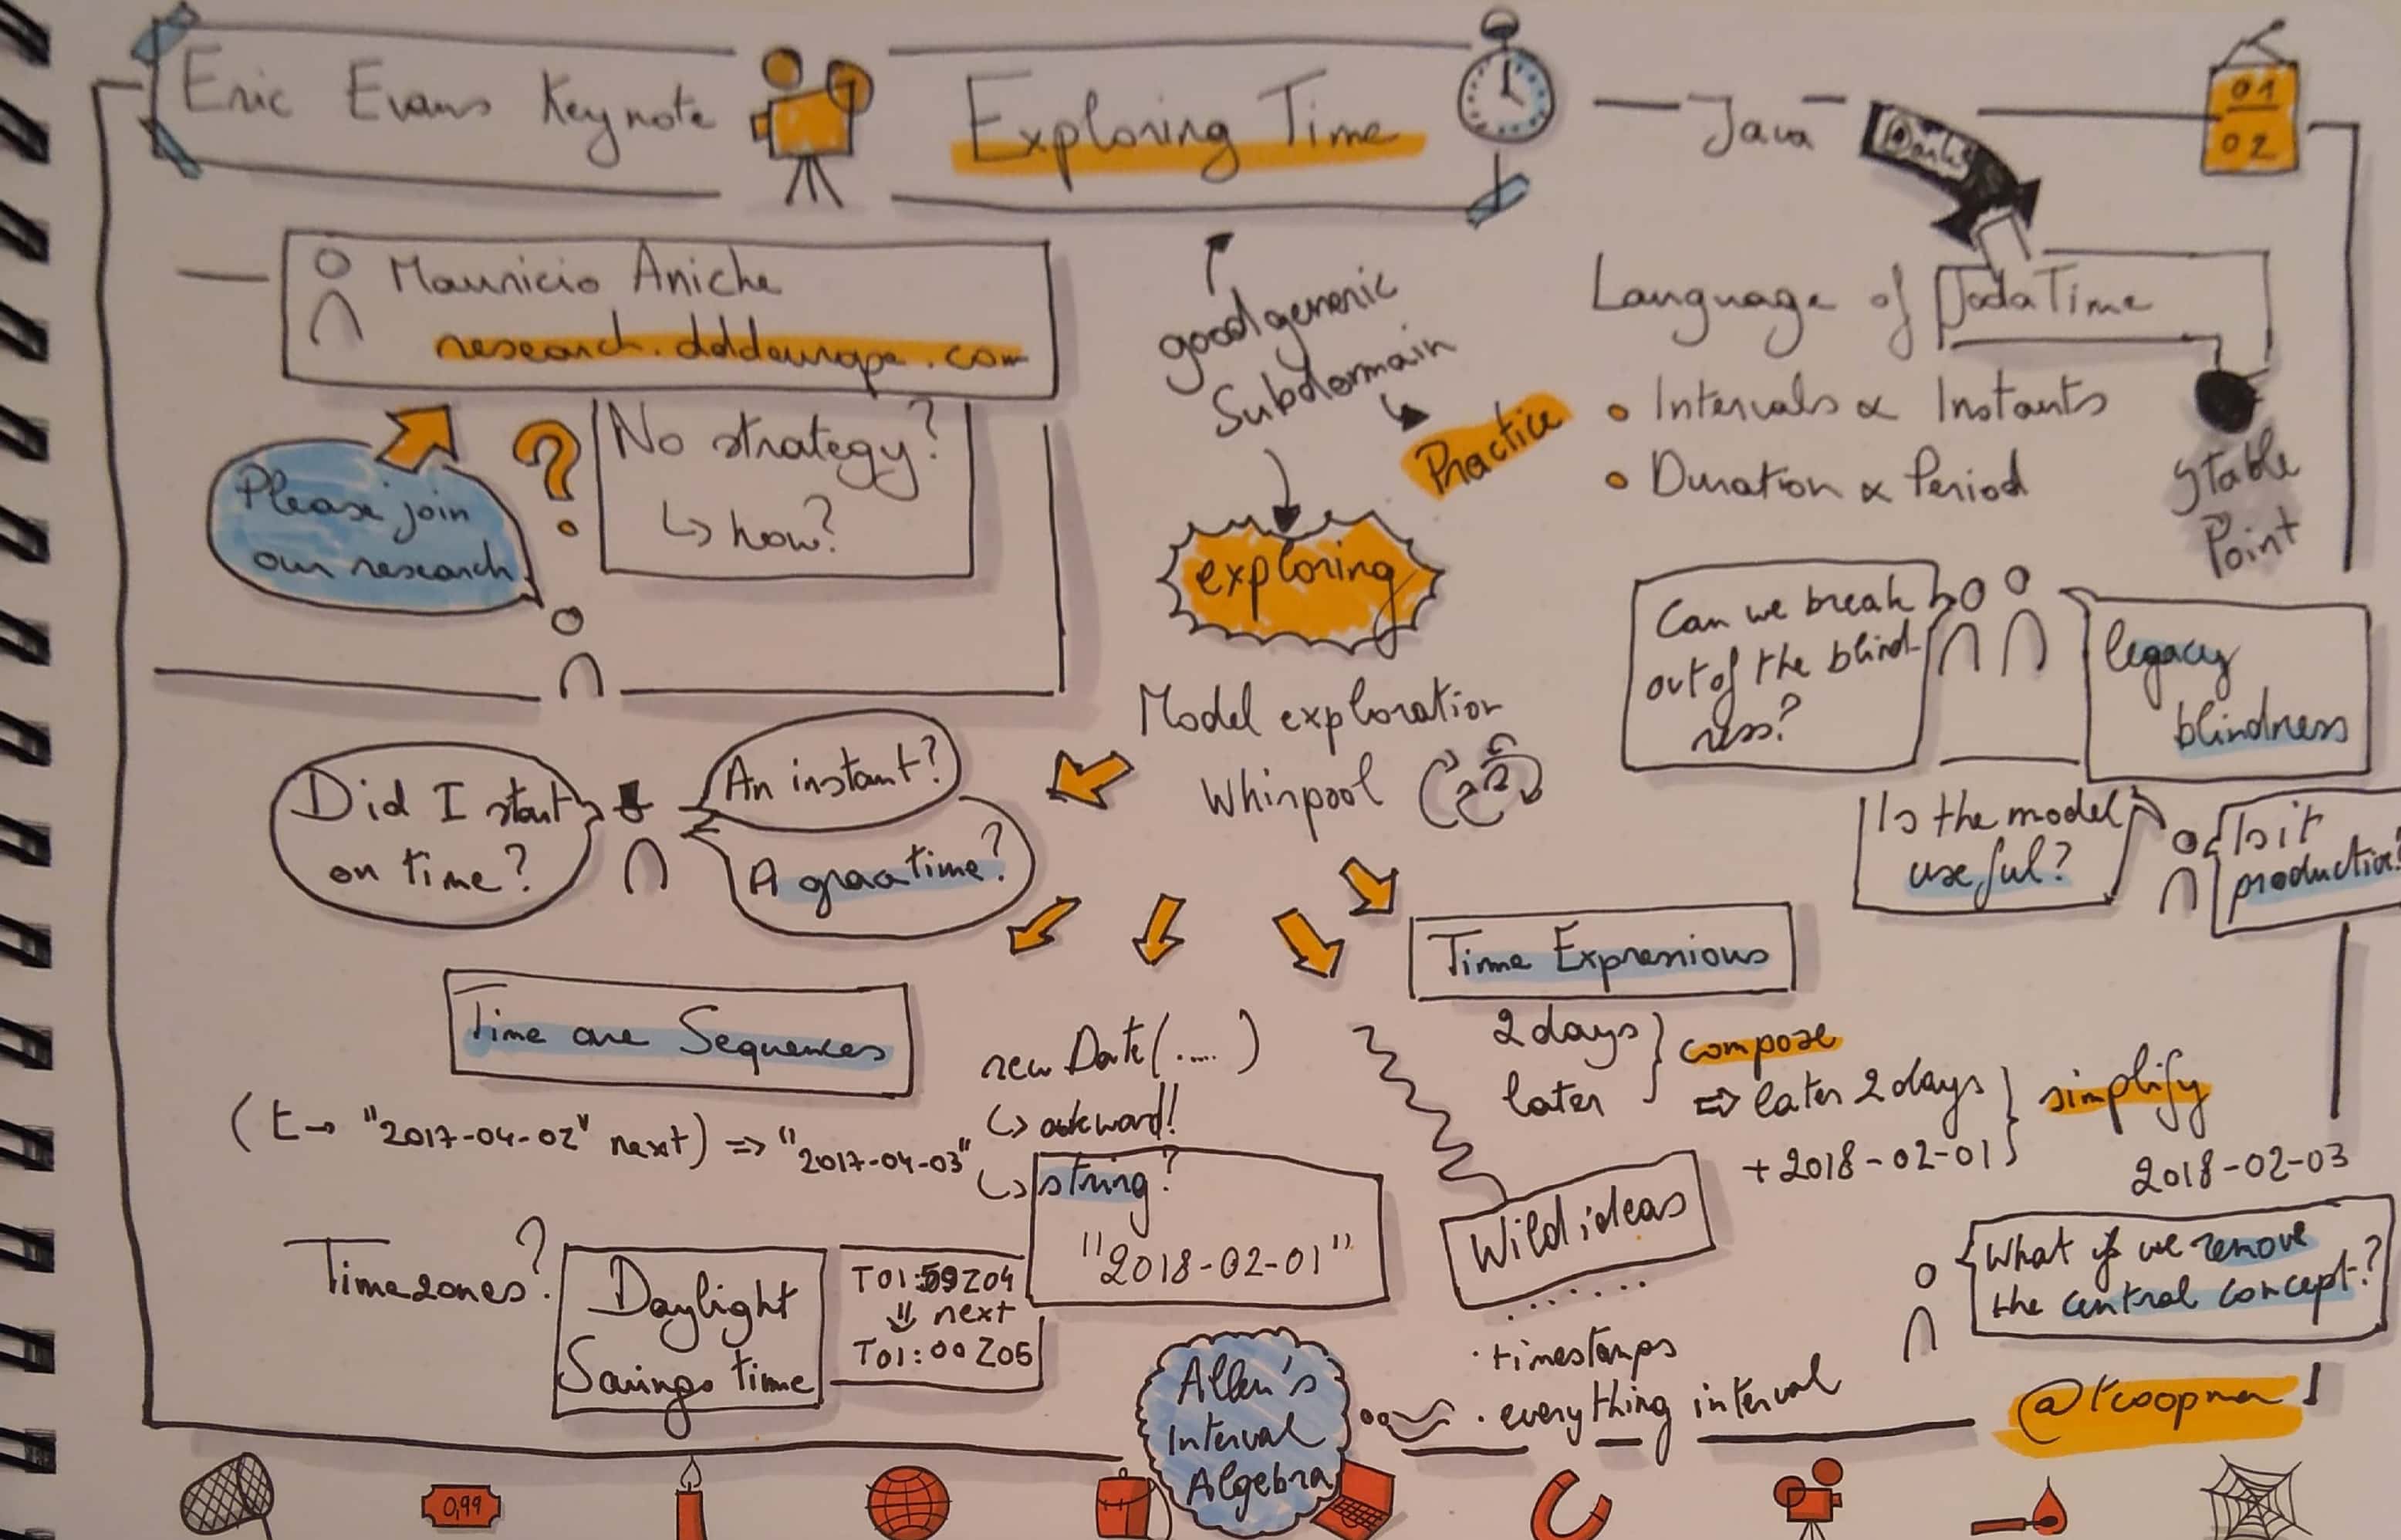 Eric Evans Keynote
Exploring Time
Java
01
02
Mauricio Aniche
research.dddeurope.com
Please join
our research
?
No strategy?
↳ how?
good generic
Subdomain
Practice
exploring
Language of JodaTime
• Intervals & Instants
• Duration & Period
Stable
Point
Can we break
out of the blind-
ness?
legacy
blindness
Is the model
useful?
Is it
Model exploration
Whirpool
Did I start
on time?
An instant?
A time?
Time are Sequences
(t→ "2017-04-02" next) => "2017-04-03"
new Date(.....)
↳ awkward!
↳ string?
"2018-02-01"
Time Expressions
2 days
later
compose
=> later 2 days
+ 2018-02-01
simplify
2018-02-03
Timezones?
Daylight
Savings time
T01:59Z04
⇓ next
T01:00Z05
Wild ideas
......
· timestamps
· everything interval
Allen's
Interval
Algebra
What if we remove
the central concept?
@tcoopman
0,99